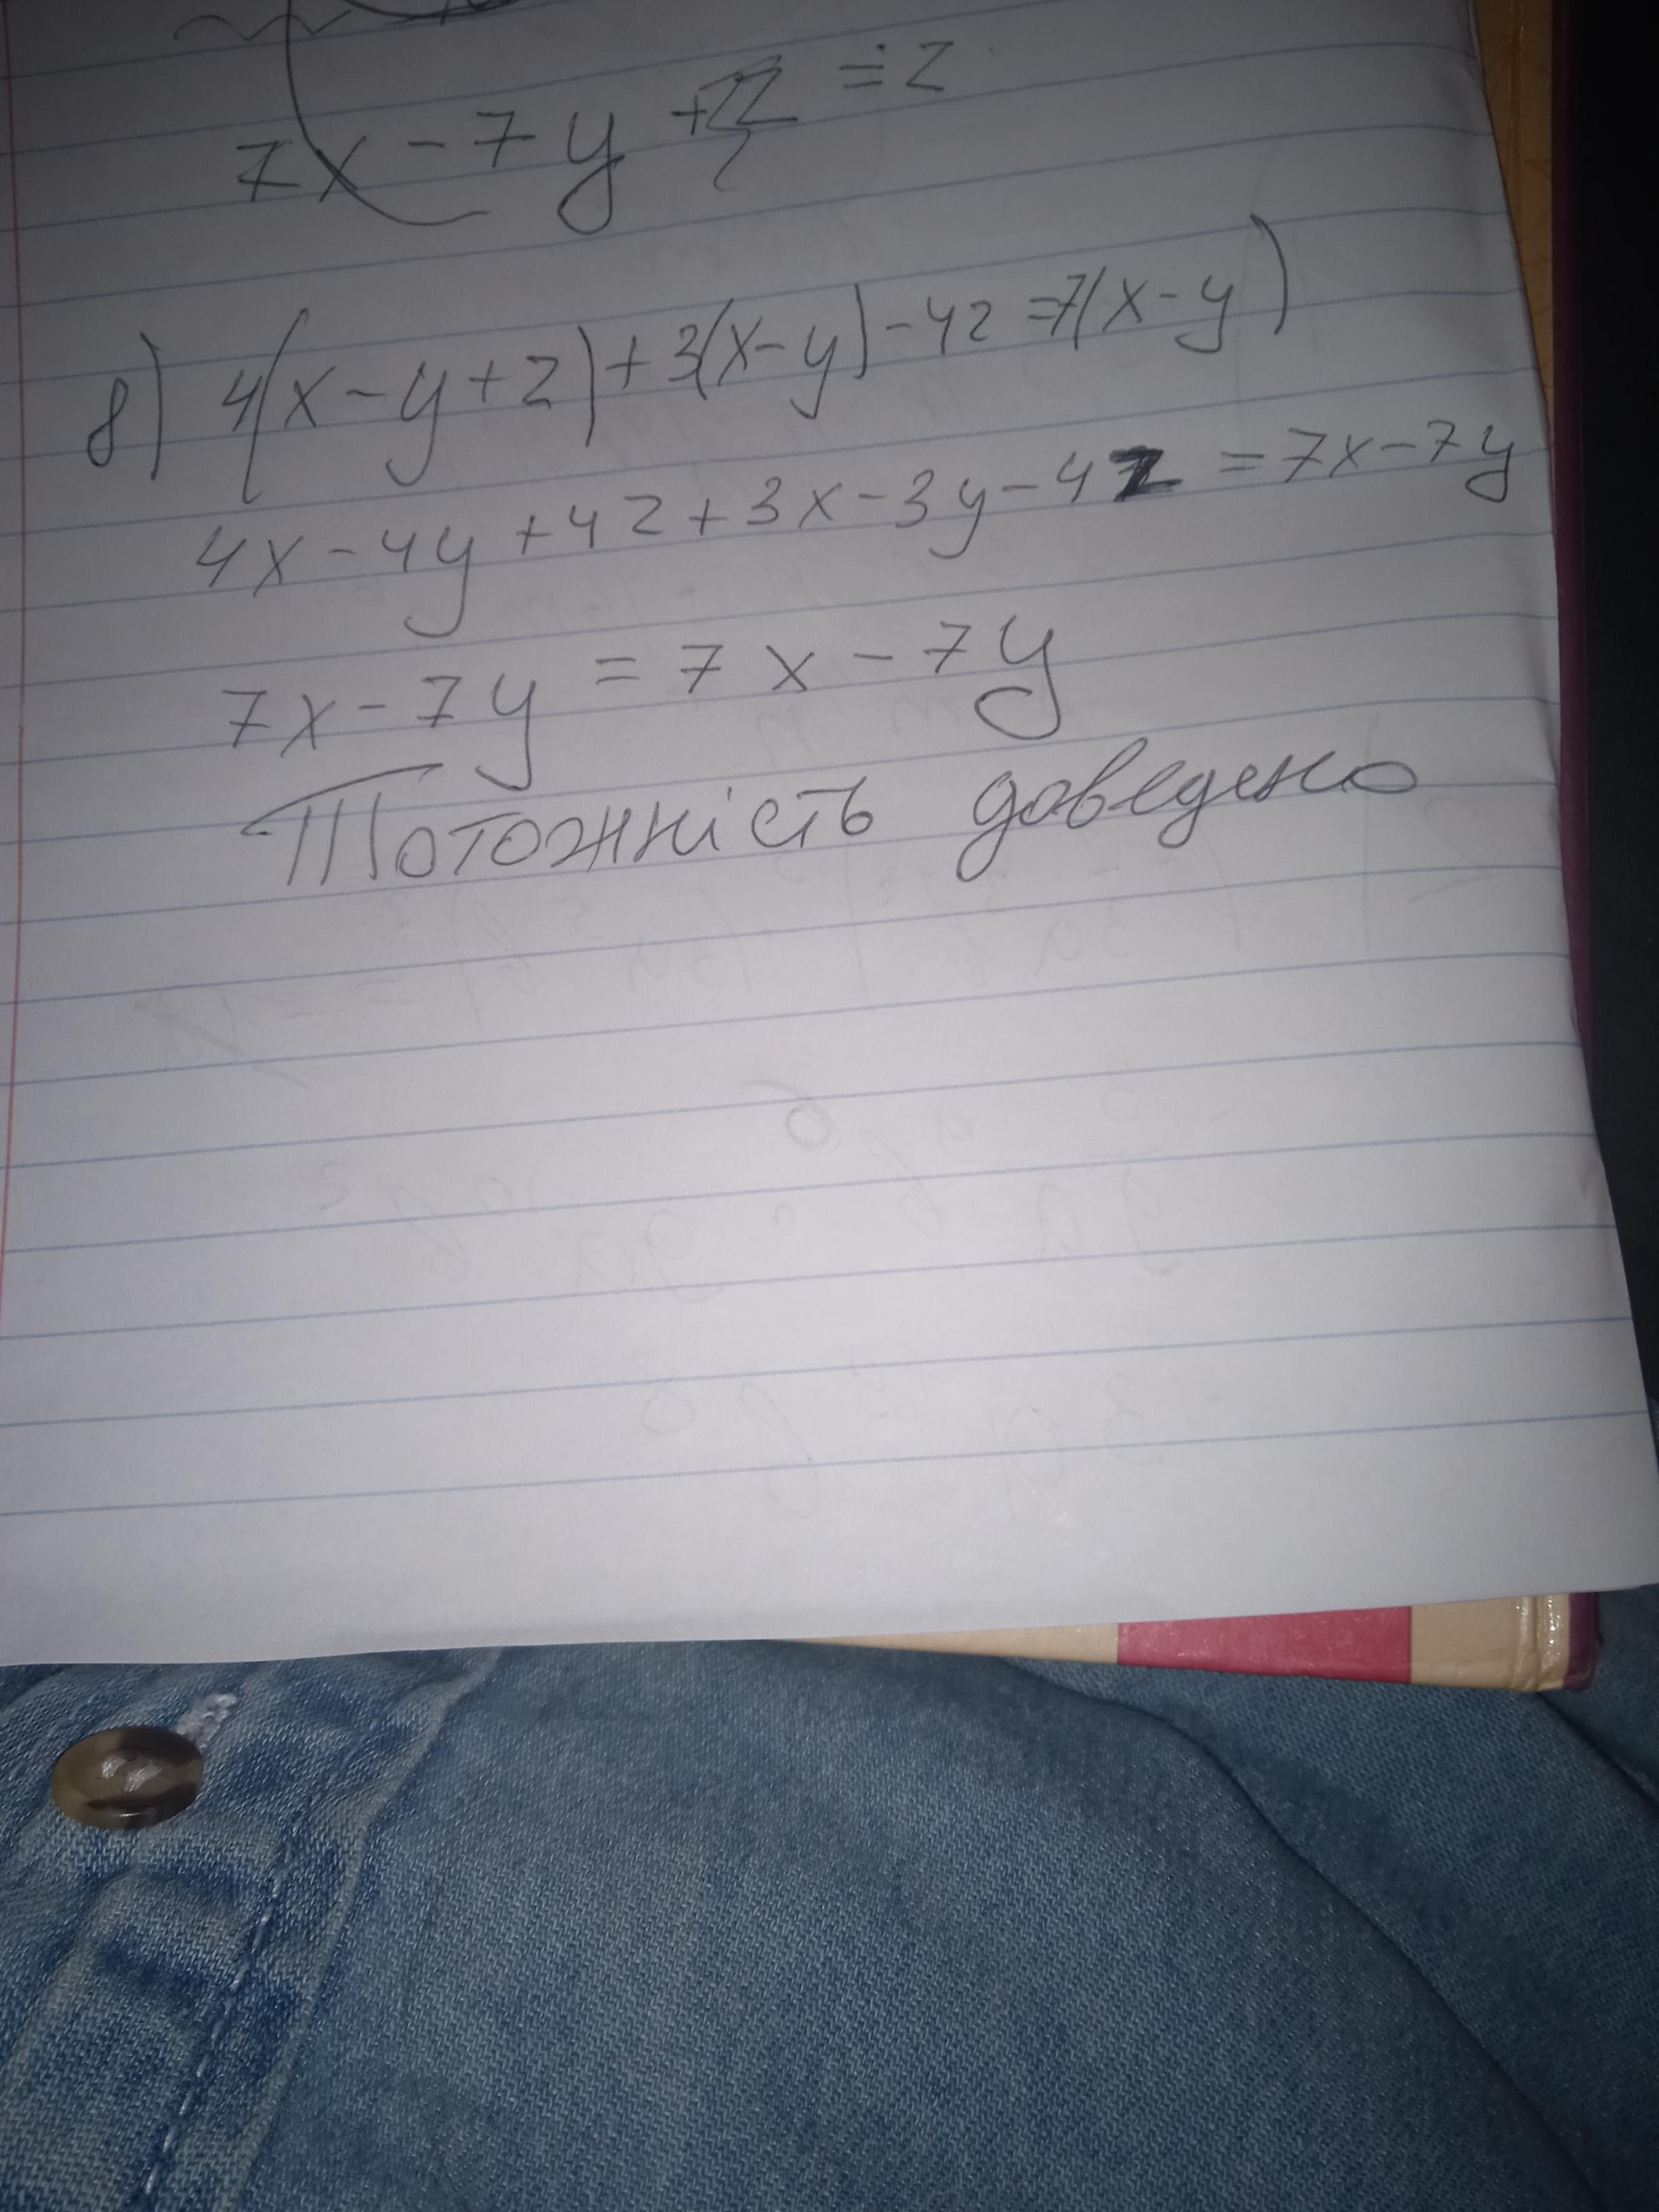 7x - 7y + z = z
8) 4(x - y + z) + 3(x - y) - 4z = 7(x - y)
4x - 4y + 4z + 3x - 3y - 4z = 7x - 7y
7x - 7y = 7x - 7y
Тотожність доведено